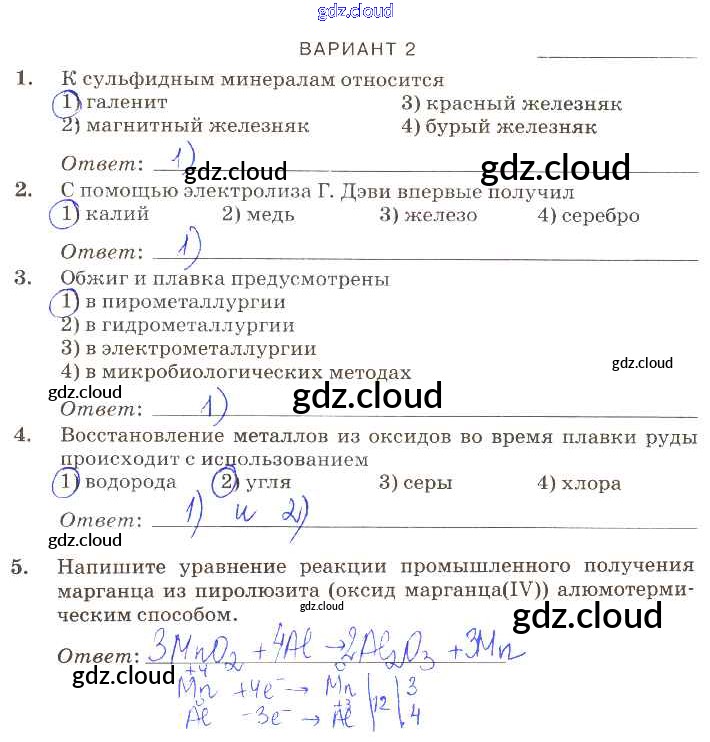 gdz.cloud
gdz.cloud
ВАРИАНТ 2
1. К сульфидным минералам относится
1) галенит 3) красный железняк
2) магнитный железняк 4) бурый железняк
Ответ: 1)
gdz.cloud gdz.cloud
2. С помощью электролиза Г. Дэви впервые получил
1) калий 2) медь 3) железо 4) серебро
Ответ: 1)
3. Обжиг и плавка предусмотрены
1) в пирометаллургии
2) в гидрометаллургии
3) в электрометаллургии
gdz.cloud
4) в микробиологических методах
gdz.cloud gdz.cloud
Ответ: 1)
4. Восстановление металлов из оксидов во время плавки руды
происходит с использованием
1) водорода 2) угля 3) серы 4) хлора
Ответ: 1) и 2)
gdz.cloud
5. Напишите уравнение реакции промышленного получения
марганца из пиролюзита (оксид марганца(IV)) алюмотерми-
ческим способом.
gdz.cloud gdz.cloud
Ответ: 3MnO2 + 4Al → 2Al2O3 + 3Mn
+4 0
Mn +4e⁻ → Mn | 12 | 3
0 +3
Al −3e⁻ → Al | | 4
gdz.cloud